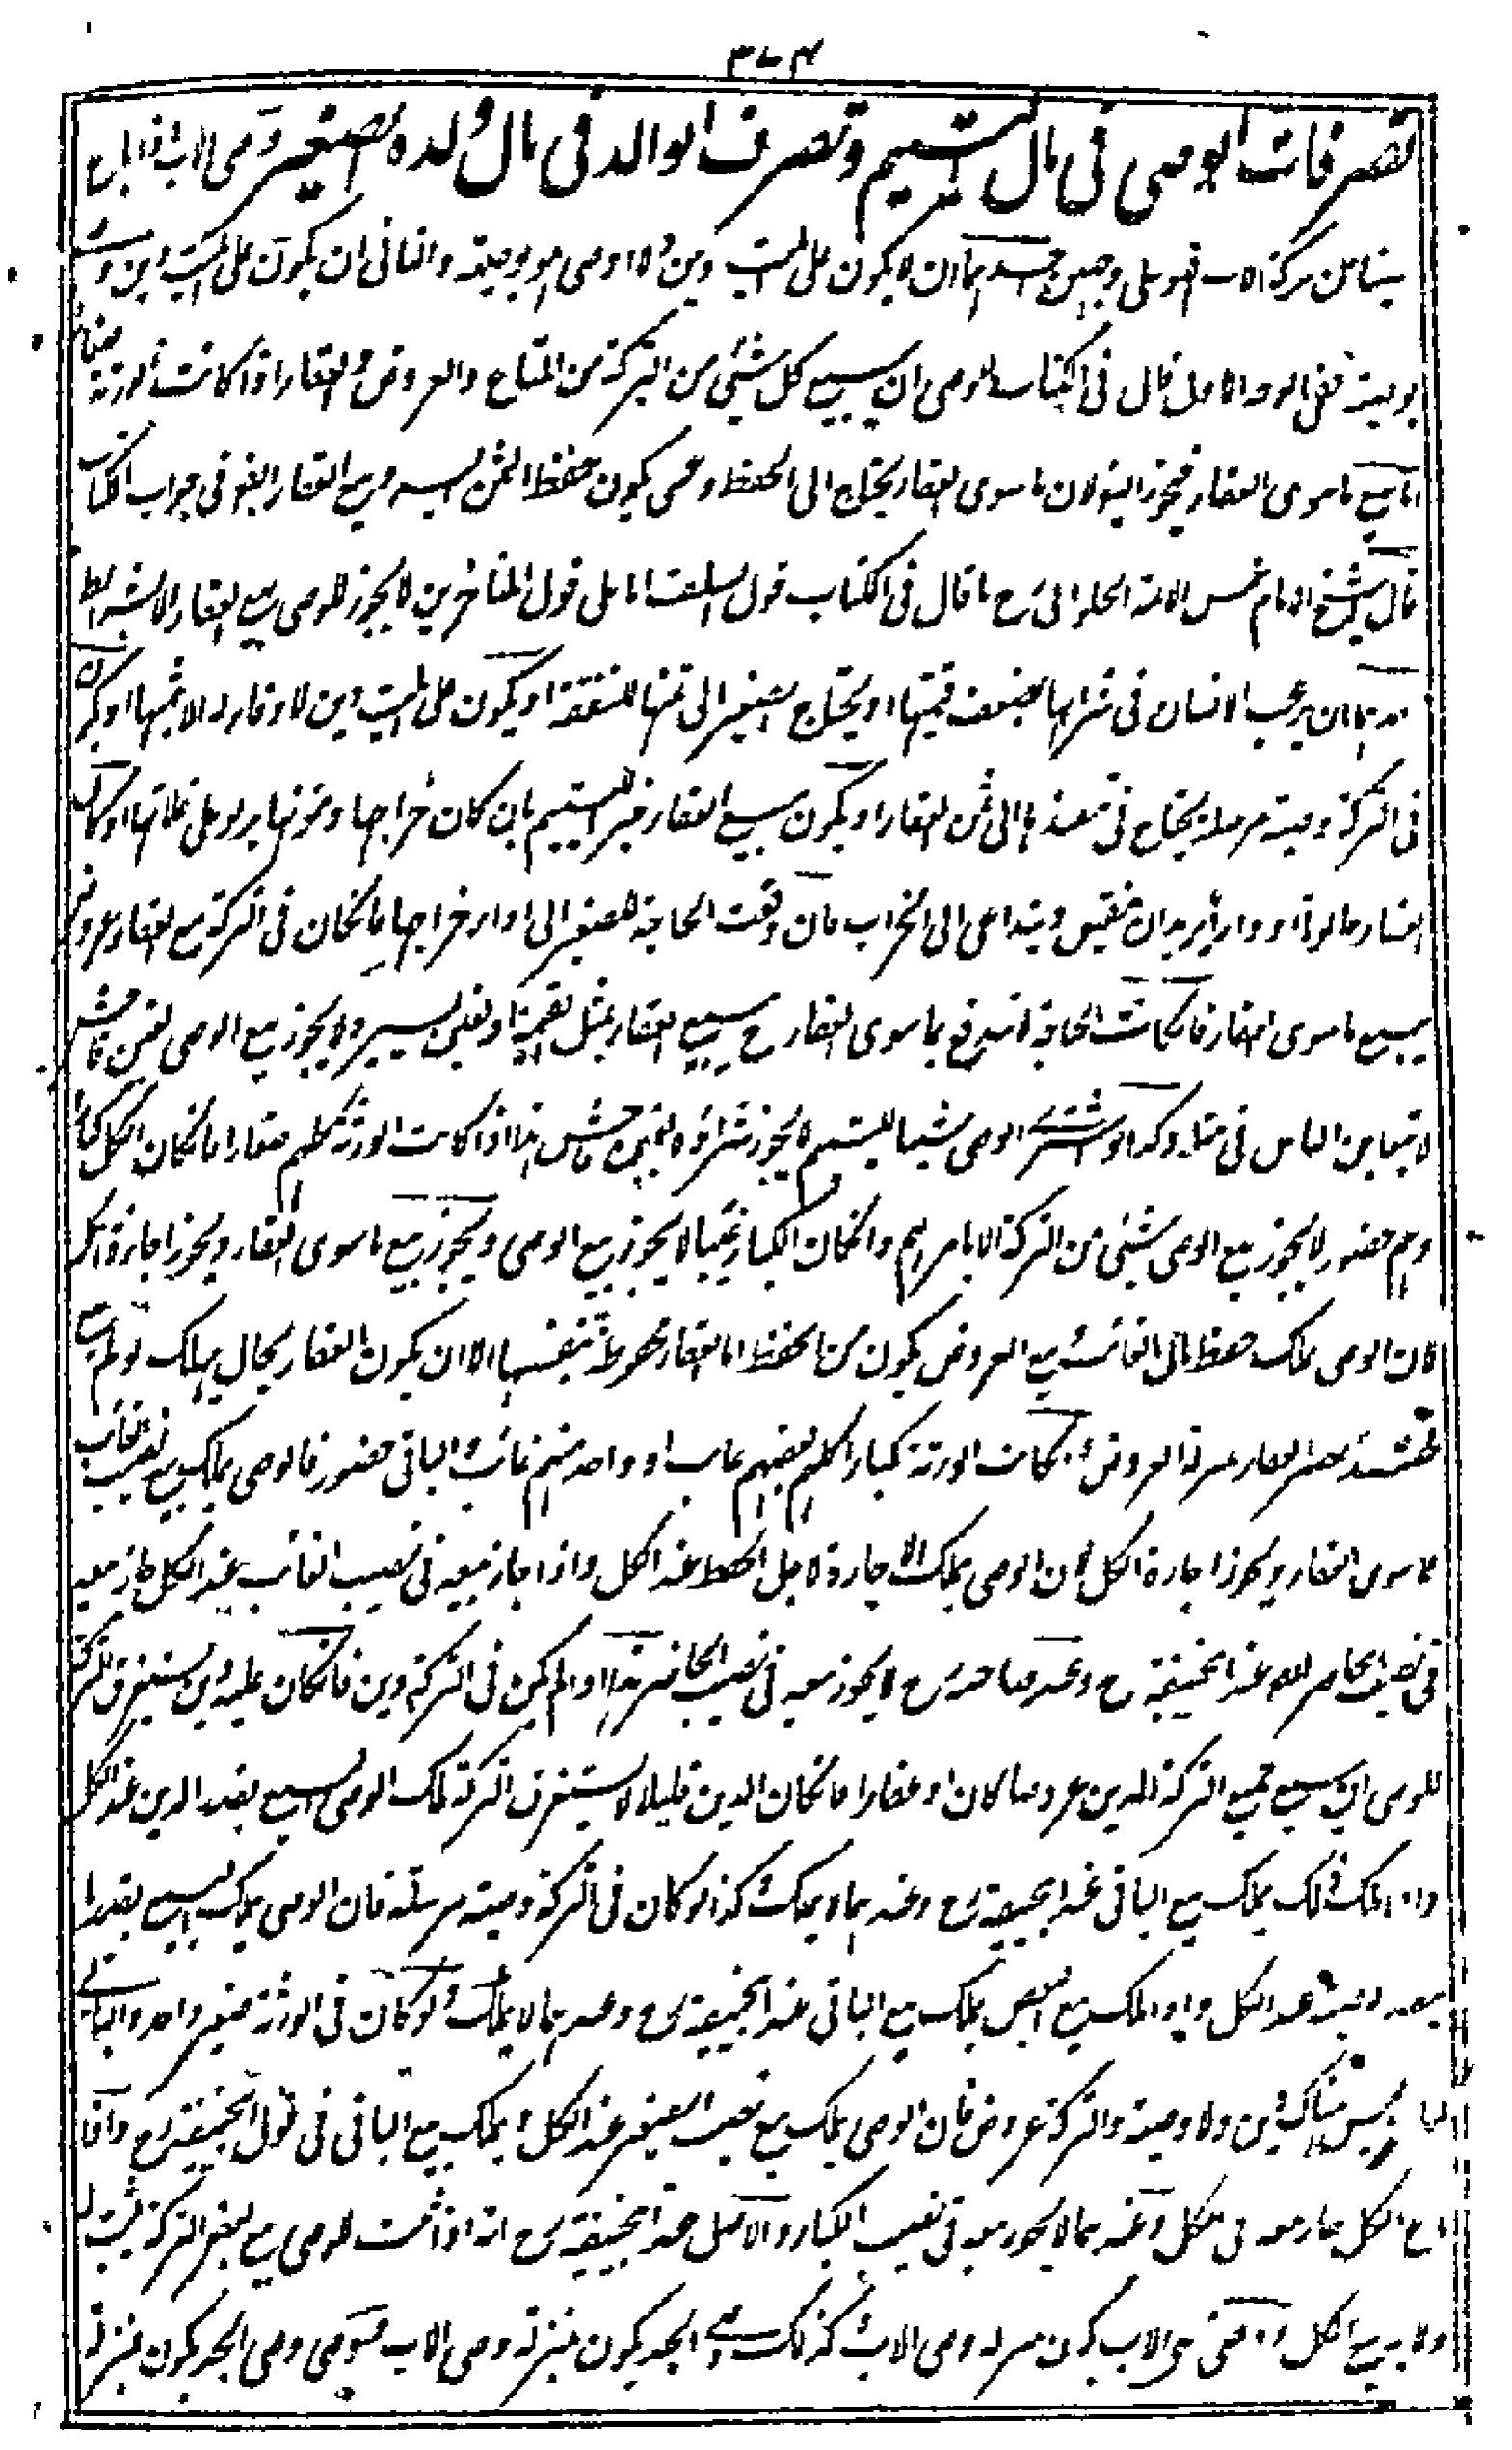 ٣٧٤
تصرفات الوصى فى مال اليتيم وتصرف الوالد فى مال ولده الصغير وصى الاب اذا باع
شيئا من تركة الاب فهو على وجهين احدهما ان لا يكون على الميت دين ولا اوصى هو بوصية والثانى ان يكون على الميت دين او
بوصية ففى الوجه الاول قال فى الكتاب للوصى ان يبيع كل شىء من التركة من المتاع والعروض والعقار اذا كانت الورثة صغارا
اما بيع ما سوى العقار فيجوز لان ما سوى العقار يحتاج الى الحفظ وعسى يكون حفظ الثمن ايسر وبيع العقار ايضو فى جواب الكتاب
قال الشيخ الامام شمس الائمة الحلوانى رح ما قال فى الكتاب قول السلف اما على قول المتاخرين لا يجوز للوصى بيع العقار الا بشرائط
ان يرغب الانسان فى شرائها بضعف قيمتها او يحتاج الصغير الى ثمنها للنفقة او يكون على الميت دين لا وفاء له الا بثمنها او يكون
فى التركة وصية مرسلة يحتاج فى تنفيذها الى ثمن العقار او يكون بيع العقار خير لليتيم بان كان خراجها ومؤنها يربو على غلاتها او كان
العقار حانوتا او دارا يريد ان ينقض ويتداعى الى الخراب فان وقعت الحاجة للصغير الى اداء خراجها فان كان فى التركة مع العقار عروض
يبيع ما سوى العقار فان كانت الحاجة لا تندفع بما سوى العقار ح يبيع العقار بمثل القيمة او بغبن يسير ولا يجوز بيع الوصى بغبن فاحش
لا يتغابن الناس فى مثله وكذا لو اشترى الوصى شيئا لليتيم لا يجوز شراؤه بغبن فاحش هذا اذا كانت الورثة كلهم صغارا فان كان الكل كبارا
وهم حضور لا يجوز بيع الوصى بشىء من التركة الا بامرهم وان كان الكبار غيبا لا يجوز بيع الوصى ويجوز بيع ما سوى العقار ويجوز اجارة الكل
لان الوصى يملك حفظ مال الغائب وبيع العروض يكون من الحفظ اما العقار محفوظة بنفسها الا ان يكون العقار بحال يهلك لو لم يبع
فحينئذ يصير العقار بمنزلة العروض وان كانت الورثة كبارا كلهم بعضهم غائب او واحد منهم غائب والباقى حضور فالوصى يملك بيع نصيب الغائب
ما سوى العقار ويجوز اجارة الكل لان الوصى يملك الاجارة لاجل الحفظ عند الكل واذا جاز بيعه فى نصيب الغائب عند الكل جاز بيعه
فى نصيب الحاضر ايضا عند ابيحنيفة رح وعند صاحبيه رح لا يجوز بيعه فى نصيب الحاضر هذا اذا لم يكن فى التركة دين فان كان عليه دين يستغرق التركة
للوصى ان يبيع جميع التركة للدين عروضا كان او عقارا فان كان الدين قليلا لا يستغرق التركة ملك الوصى البيع بقدر الدين عند الكل
واذا ملك ذلك يملك بيع الباقى عند ابيحنيفة رح وعندهما لا يملك وكذا لو كان فى التركة وصية مرسلة فان الوصى يملك البيع بقدر ما
ينفذ وصيته عند الكل واذا ملك بيع البعض يملك بيع الباقى عند ابيحنيفة رح وعندهما لا يملك ولو كان فى الورثة صغير واحد والباقى
كبار وليس هناك دين ولا وصية والتركة عروض فان الوصى يملك بيع نصيب الصغير عند الكل ويملك بيع الباقى فى قول ابيحنيفة رح واذا
باع الكل جاز بيعه فى الكل وعندهما لا يجوز بيعه فى نصيب الكبار والاصل عند ابيحنيفة رح انه اذا ثبت للوصى بيع بعض التركة يثبت له
ولاية بيع الكل ووصى وصى الاب يكون بمنزلة وصى الاب وكذلك وصى الجد يكون بمنزلة وصى الاب ووصى وصى الجد يكون بمنزلة